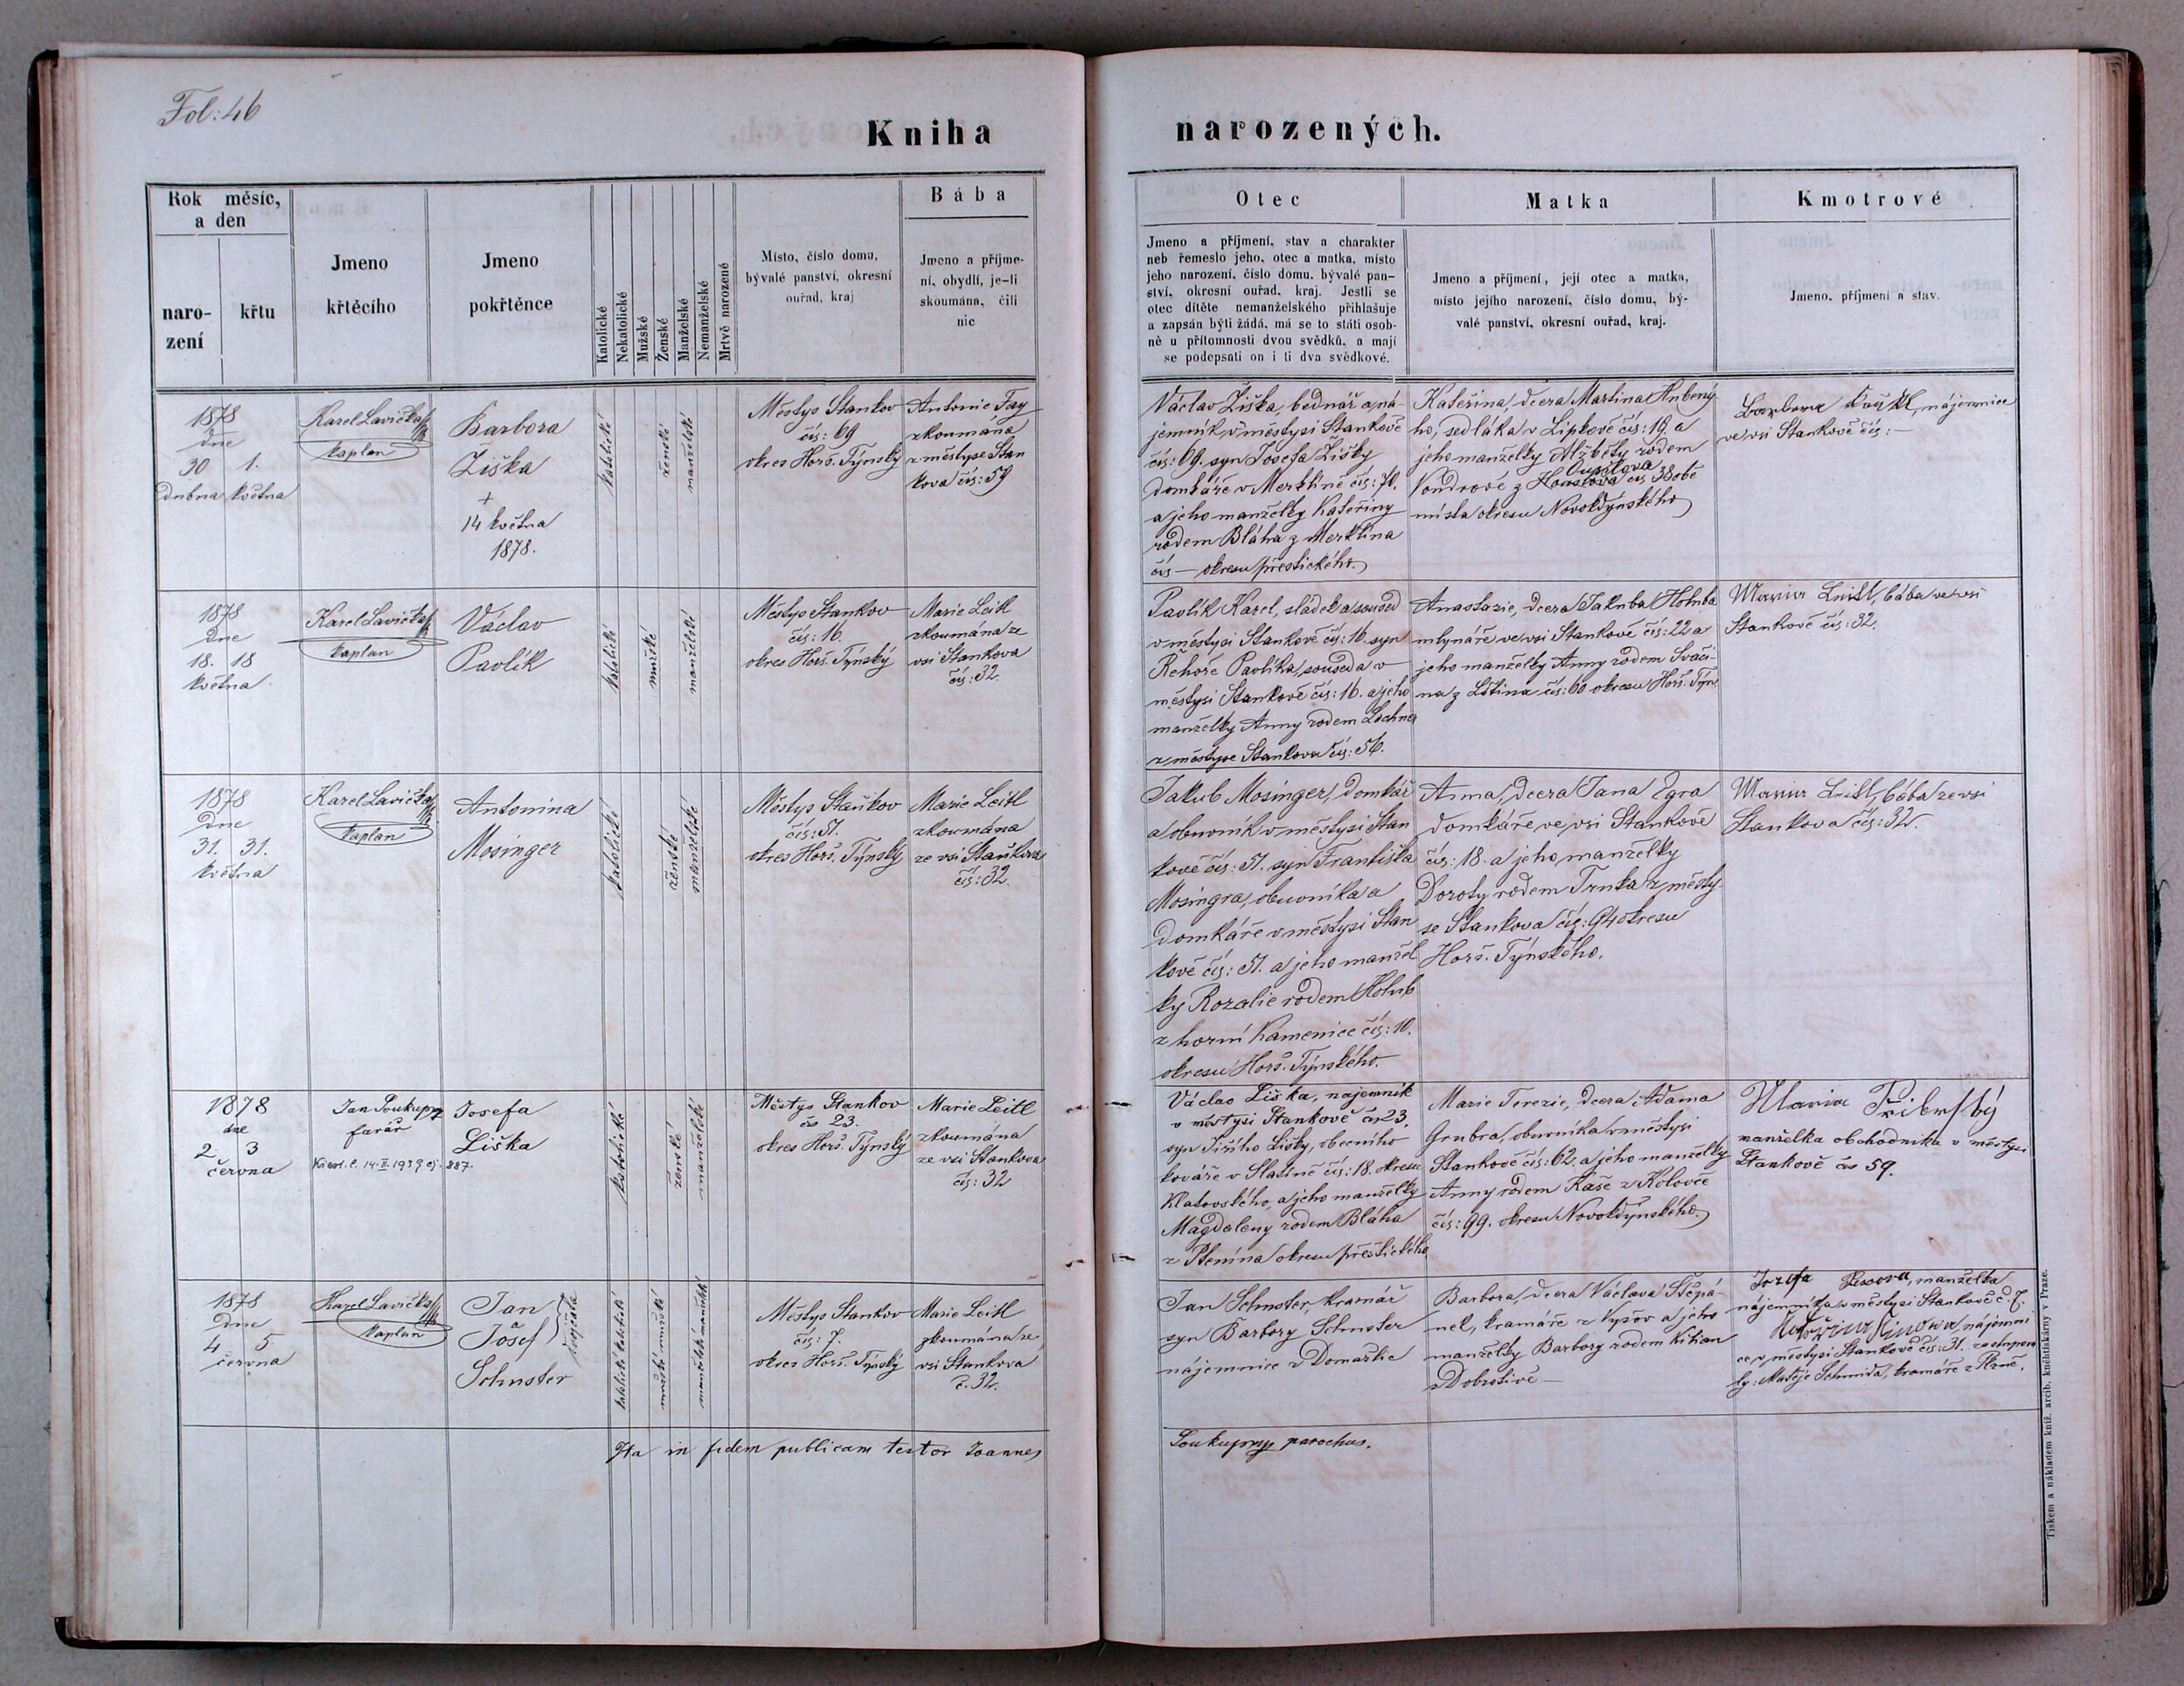 Fol: 46
Kniha narozených.
Rok měsíc,
a den
naro-
zení
křtu
Jmeno
křtěcího
Jmeno
pokřtěnce
Katolické
Nekatolické
Mužské
Ženské
Manželské
Nemanželské
Mrtvě narozené
Místo, číslo domu,
bývalé panství, okresní
ouřad, kraj
Bába
Jmeno a příjme-
ní, obydlí, je-li
skoumána, čili
nic
Otec
Jmeno a příjmení, stav a charakter
neb řemeslo jeho, otec a matka, místo
jeho narození, číslo domu, bývalé pan-
ství, okresní ouřad, kraj. Jestli se
otec dítěte nemanželského přihlašuje
a zapsán býti žádá, má se to státi osob-
ně u přítomnosti dvou svědků, a mají
se podepsati on i ti dva svědkové.
Matka
Jmeno a příjmení, její otec a matka,
místo jejího narození, číslo domu, bý-
valé panství, okresní ouřad, kraj.
Kmotrové
Jmeno, příjmení a stav.
1878
dne
30 1.
dubna května
Karel Lavička
kaplan
Barbora
Žiška
+
14 května
1878.
katolické
ženské
manželské
Městys Stankov
čís: 69
okres Horš. Týnský
Antonie Fay
zkoumaná
z městyse Stan
kova čís: 59
Václav Žiška, bednář a ná-
jemník v městysi Stankově
čís: 69. syn Josefa Žišky
domkáře v Merklíně čís: 70.
a jeho manželky Kateřiny
rodem Bláha z Merklína
čís — okresu přestického.
Kateřina, dcera Martina Hubený-
ho, sedláka v Lipkově čís: 19. a
jeho manželky Alžběty rodem
Oupslova
Vondrové z Houslova čís 38 obě
místa okresu Novokdýnského
Barbora nájemnice
ve vsi Stankově čís: —
1878
dne
18. 18
května
Karel Lavička
kaplan
Václav
Pavlík
katolické
mužské
manželské
Městys Stankov
čís: 16.
okres Horš. Týnský
Marie Leitl
zkoumána ze
vsi Stankova
čís: 32.
Pavlík Karel, sládek a soused
v městysi Stankově čís: 16. syn
Řehoře Pavlíka, souseda v
městysi Stankově čís: 16. a jeho
manželky Anny rodem Lochner
z městyse Stankova čís: 56.
Anastazie, dcera Jakuba Holuba
mlynáře ve vsi Stankově čís: 22 a
jeho manželky Anny rodem Svači-
na z Lštína čís: 60 okresu Horš. Týn.
Maria Leitl, bába ve vsi
Stankově čís: 32.
1878
dne
31. 31.
května
Karel Lavička
kaplan
Antonina
Mosinger
katolické
ženské
manželské
Městys Staňkov
čís: 51.
okres Horš. Týnský
Marie Leitl
zkoumána
ze vsi Staňkova
čís: 32.
Jakub Mosinger, domkář
a obuvník v městysi Stan
kově čís: 51. syn Františka
Mosingra, obuvníka a
domkáře v městysi Stan
kově čís: 51. a jeho manžel
ky Rozalie rodem Holub
z horní Kamenice čís: 10.
okresu Horš. Týnského.
Anna, dcera Jana Egra
domkáře ve vsi Stankově
čís: 18. a jeho manželky
Doroty rodem Trnka z městy-
se Stankova čís: 94 okresu
Horš. Týnského.
Maria Leitl, bába ze vsi
Stankova čís: 32.
1878
dne
2 3
června
Jan Soukupp
farář
Josefa
Liška
Křest. l. 14. II. 1939 čj. 887.
katolické
ženské
manželské
Městys Stankov
čs 23.
okres Horš. Týnský
Marie Leitl
zkoumána
ze vsi Stankova
čís: 32
Václav Liška, nájemník
v městysi Stankově čs 23,
syn Jiřího Lišky, obecního
kováře v Slatině čís: 18. okresu
Klatovského, a jeho manželky
Magdaleny rodem Bláha
z Ptenína okresu přestického
Marie Terezie, dcera Adama
Grubra, obuvníka v městysi
Stankově čís: 62. a jeho manželky
Anny rodem Kaše z Kolovče
čís: 99. okresu Novokdýnského.
Maria
manželka obchodníka v městysi
Stankově čs 59.
1878
dne
4 5
června
Karel Lavička
kaplan
Jan
a
Josef
Schuster
dvojčata
katolické katolické
mužské mužské
manželské manželské
Městys Stankov
čís: 7.
okres Horš. Týnský
Marie Leitl
zkoumána ze
vsi Stankova
č. 32.
Jan Schuster, kramář
syn Barbory Schuster
nájemnice z Domažlic
Barbora, dcera Václava Štěpá-
nek, kramáře z Vyšov a jeho
manželky Barbory rodem Kilian
z Dobrotivé —
Jozefa manželka
nájemníka v městysi Stankově č. 7.
nájemni
ce v městysi Stankově čís: 31. zastupova
ly: Matěje Schmida, kramáře z Plzně.
Ita in fidem publicam testor Joannes
Soukupp parochus.
Tiskem a nákladem kníž. arcib. knihtiskárny v Praze.